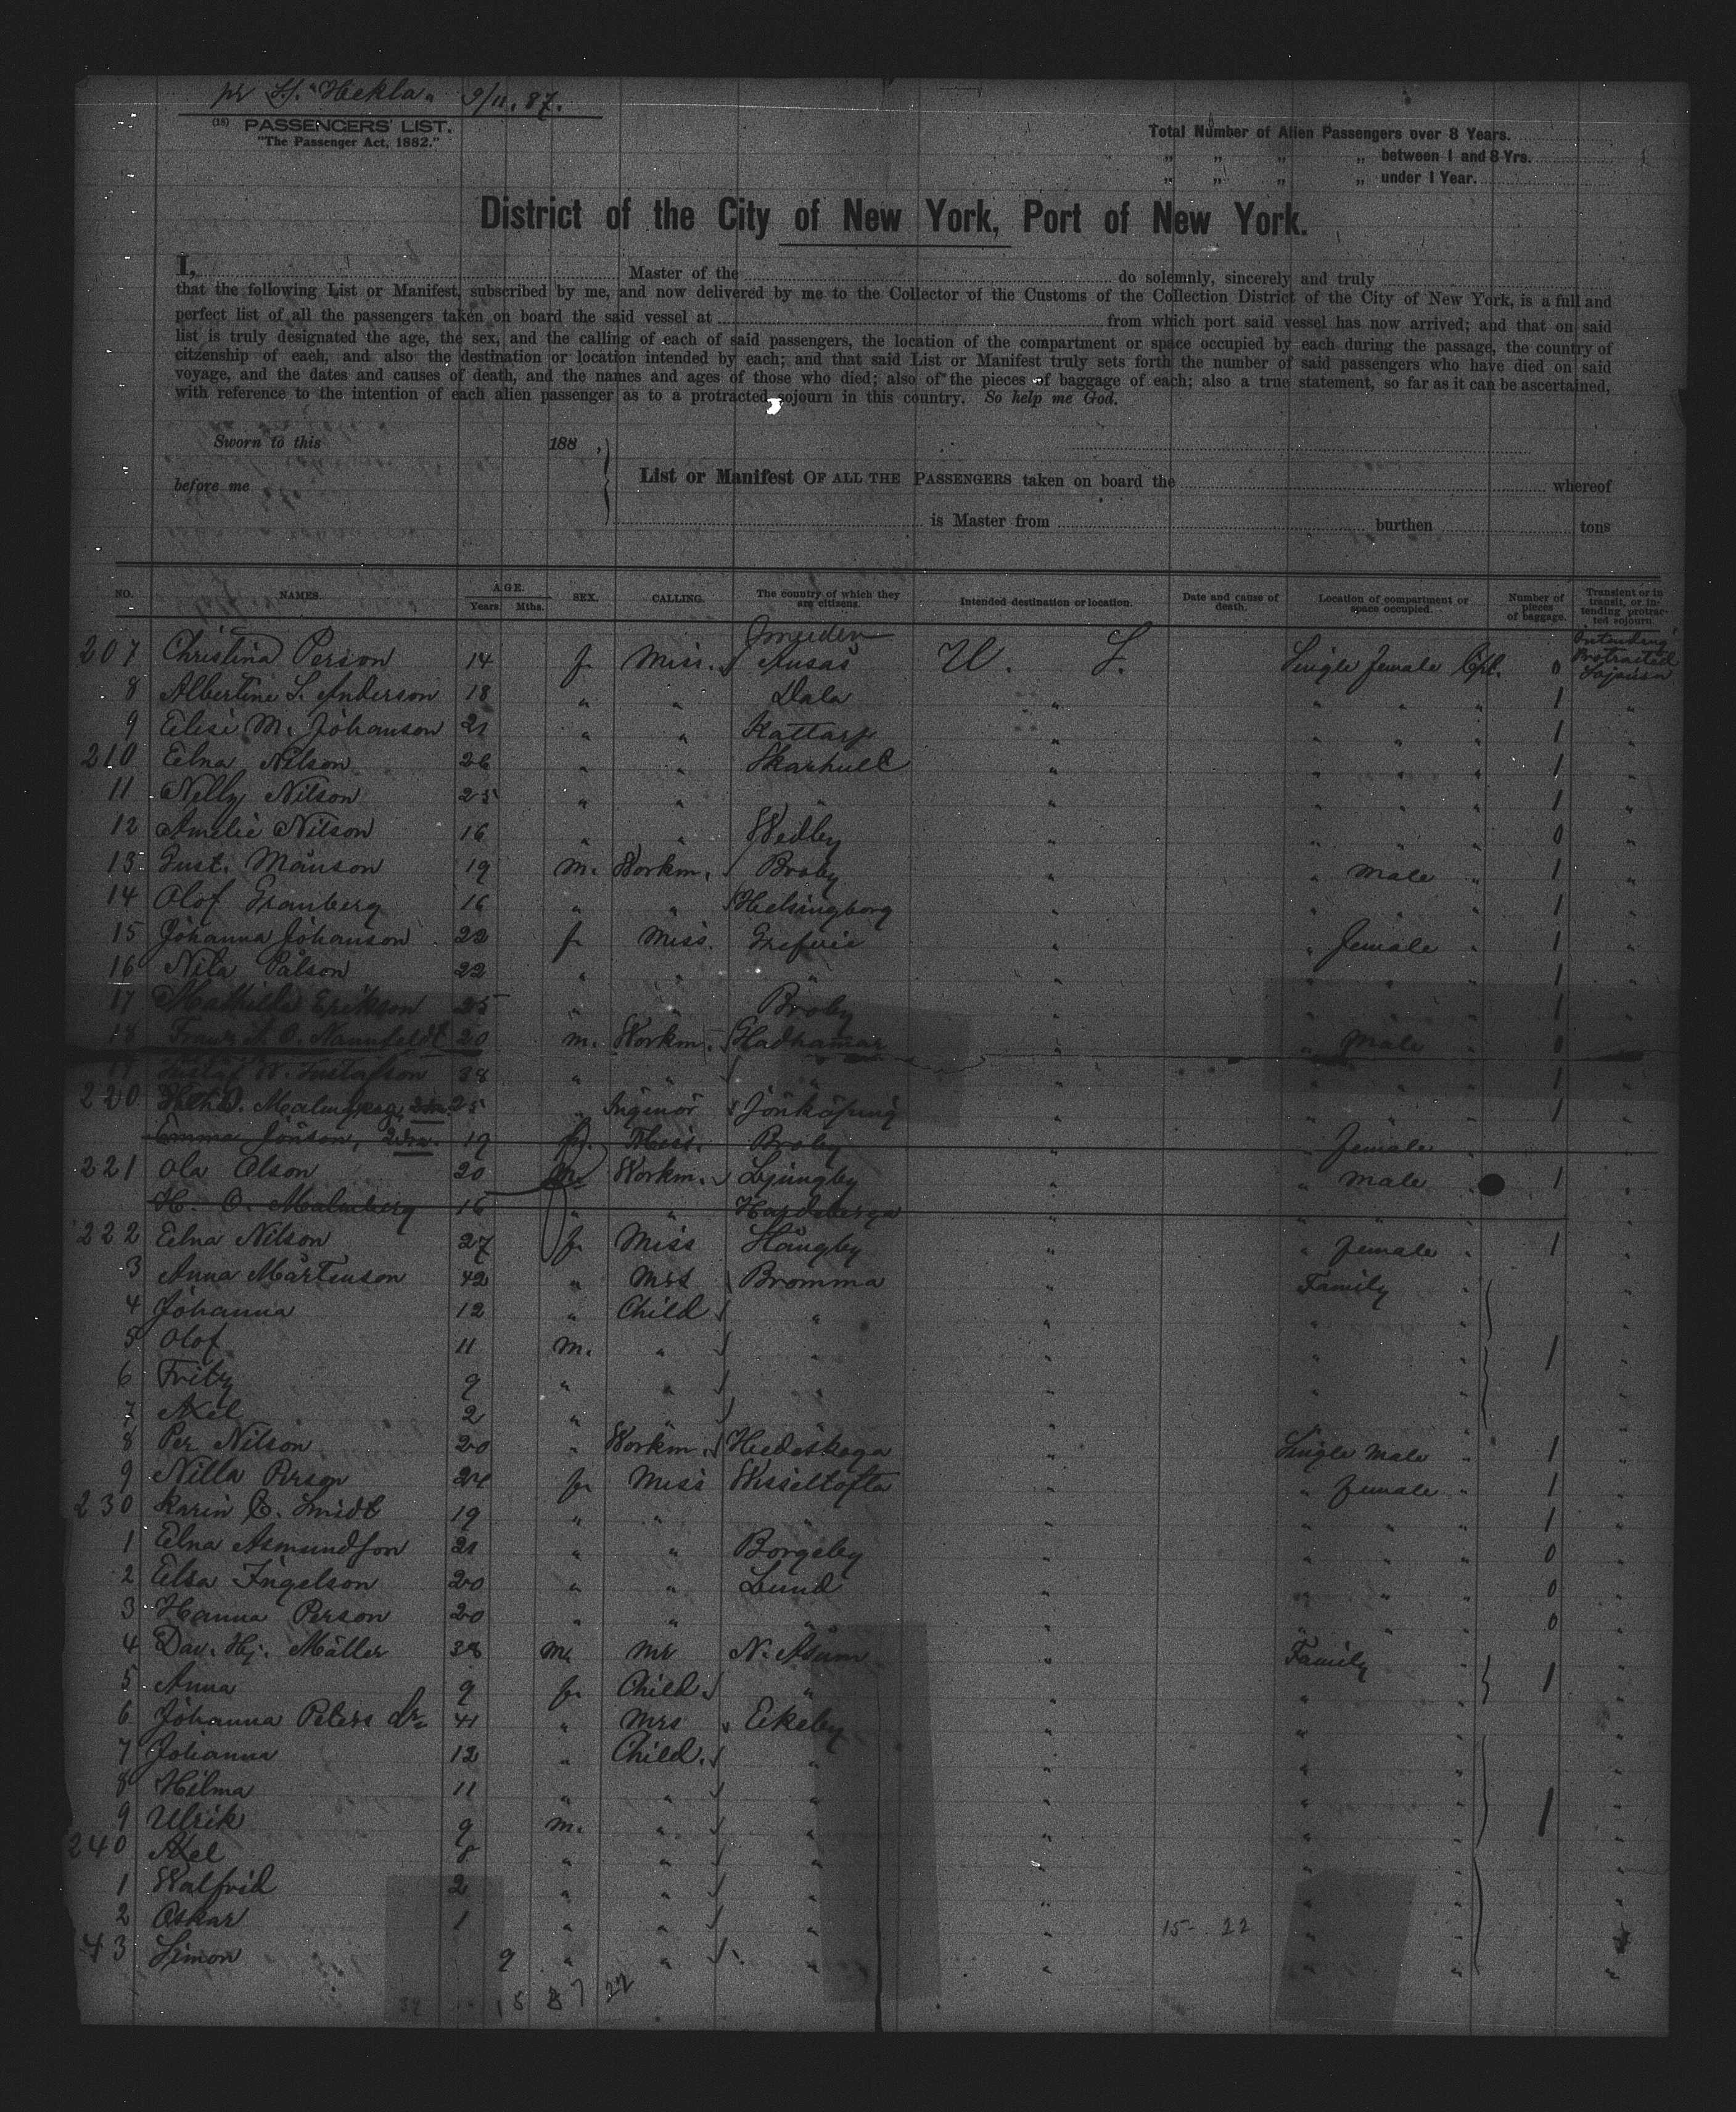 pr S/S. "Hekla" 9/11. 87.
(18) PASSENGERS' LIST.
"The Passenger Act, 1882."
Total Number of Alien Passengers over 8 Years.
" " " " between 1 and 8 Yrs.
" " " " under 1 Year.
District of the City of New York, Port of New York.
I, Master of the do solemnly, sincerely and truly
that the following List or Manifest, subscribed by me, and now delivered by me to the Collector of the Customs of the Collection District of the City of New York, is a full and
perfect list of all the passengers taken on board the said vessel at from which port said vessel has now arrived; and that on said
list is truly designated the age, the sex, and the calling of each of said passengers, the location of the compartment or space occupied by each during the passage, the country of
citizenship of each, and also the destination or location intended by each; and that said List or Manifest truly sets forth the number of said passengers who have died on said
voyage, and the dates and causes of death, and the names and ages of those who died; also of the pieces of baggage of each; also a true statement, so far as it can be ascertained,
with reference to the intention of each alien passenger as to a protracted sojourn in this country. So help me God.
Sworn to this 188 ,
before me
List or Manifest OF ALL THE PASSENGERS taken on board the whereof
is Master from burthen tons
NO. NAMES. AGE. Years. Mths. SEX. CALLING. The country of which they are citizens. Intended destination or location. Date and cause of death. Location of compartment or space occupied. Number of pieces of baggage. Transient or in transit, or intending protracted sojourn.
207 Christina Person 14 f. Miss. Ausås U. S. Single female Cpt. 0 Intending Protracted Sojourn
8 Albertine S. Anderson 18 " " Dala " " " 1 "
9 Elise M. Johanson 21 " " Kattarp " " " " 1 "
210 Elna Nilson 26 " " Skarhult " " " " 1 "
11 Nelly Nilson 25 " " " " " " " 1 "
12 Amelie Nilson 16 " " Wedby " " " " 0 "
13 Gust. Månson 19 m. Workm. Broby " " male " 1 "
14 Olof Granberg 16 " " Helsingborg " " " " 1 "
15 Johanna Johanson 22 f. Miss. Grefvie " " female " 1 "
16 Nila Pålson 22 " " " " " " 1 "
17 Mathilda Erikson 25 " " Broby " " " 1 "
18 Franz A. O. Nannfeldt 20 m. Workm. Gladhamar " " male "
19 Gustaf W. Gustafson 38 " " " " " " 1 "
220 Malmberg, 25 " Ingeniör Jönköping " " " " 1 "
Emma Jönson, 19 f. Miss. Broby " " female "
221 Ola Olson 20 m. Workm. Ljungby " " male 1 "
H. O. Malmberg 16 " " Hardeberga " " " "
222 Elna Nilson 27 f. Miss Hångby " " female " 1 "
3 Anna Mårtenson 42 " Mrs Bromma " Family " "
4 Johanna 12 " Child " " " " "
5 Olof 11 m. " " " " " 1 "
6 Fritz 9 " " " " " " "
7 Axel 2 " " " " " " "
8 Per Nilson 20 " Workm. Hedeskoga " Single male " 1 "
9 Nilla Person 24 f. Miss Wisseltofta " " female " 1 "
230 Karin C. Smidt 19 " " " " " " " 1 "
1 Elna Asmundson 21 " " Borgeby " " " " 0 "
2 Elsa Ingelson 20 " " Lund " " " " 0 "
3 Hanna Person 20 " " " " " " " 0 "
4 Dav. Hj. Möller 38 m. Mr N. Åsum " Family " 1 "
5 Anna 9 f. Child " " " " "
6 Johanna Peters dr. 41 " Mrs Ekeby " " " "
7 Johanna 12 " Child. " " " " "
8 Hilma 11 " " " " " " "
9 Ulrik 9 m. " " " " " 1 "
240 Axel 8 " " " " " " "
1 Walfrid 2 " " " " " " "
2 Oskar 1 " " " " 15- 22 " "
43 Simon 9 " " " " " " "